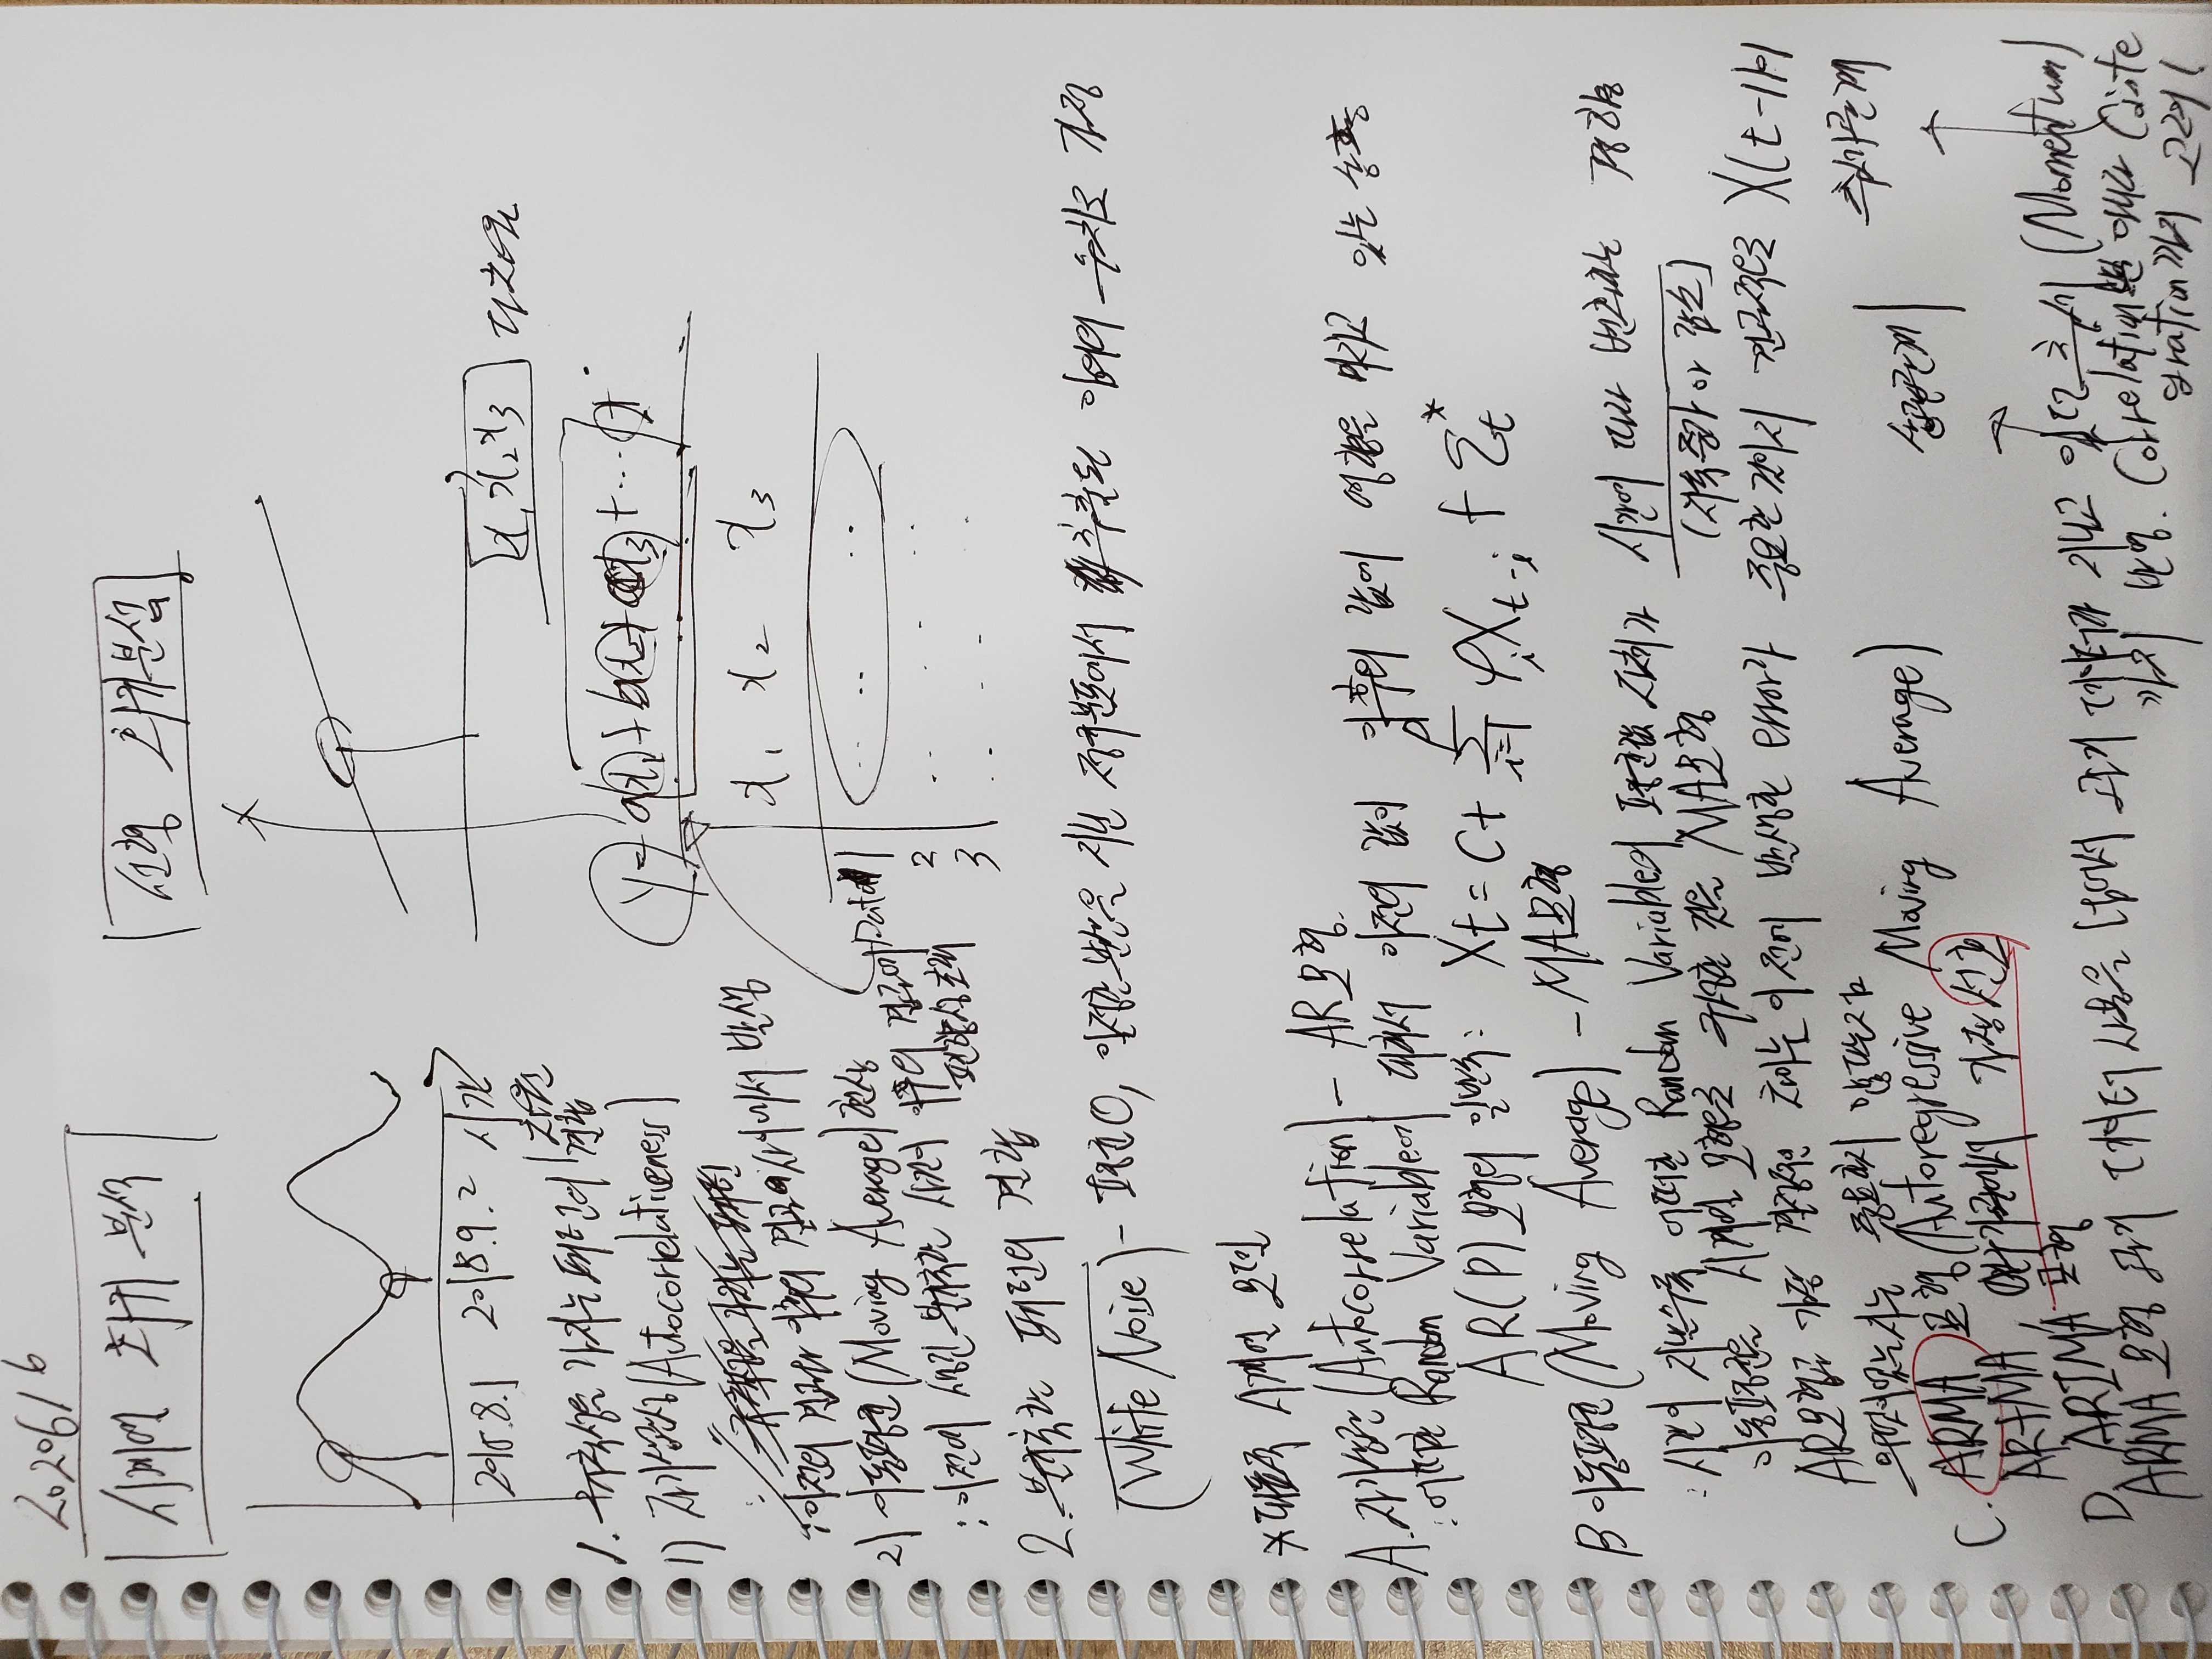 202061 6
시계열 회귀 분석
선형 회귀분석
2018.8.1 2018.9.2 시간
x1 x2 x3 다차원
1. 규칙성을 가지는 패턴의 결합
1차원
1) 자기상관성(Autocorrelativeness)
규칙성을 가지는 패턴
: 이전의 결과와 이후의 결과 사이에서 발생
2) 이동평균(Moving Average) 현상
: 이전에 생긴 불규칙한 사건이 이후의 결과에
편향성 초래
y = ax1 + bx2 + cx3 + ... +
x1 x2 x3
Data 1
2
3
2. 불규칙한 패턴의 결합
(White Noise) - 평균 0, 일정한 분산을 지닌 정규분포에서 추출된 임의의 수치로 가정
* 대표적 시계열 모델
A. 자기상관(Autocorrelation) - AR모형.
: 어떠한 Random Variable에 대해서 이전의 값이 이후의 값에 영향을 미치고 있는 상황
AR(P) 모형의 일반식: Xt = C + Σ(i=1, p) φiXt-i + Σt*
B 이동평균(Moving Average) - MA모형
: 시간이 지날수록 어떠한 Random Variable의 평균값 자체가 시간에 따라 변화하는 경향
(지속 증가 or 감소)
이동평균을 시계열 모형으로 구성한 것을 MA모형
AR모형과 가장 결정적인 차이는 이전에 발생한 error가 중요한 것이지 결과적으로 X(t-1)이
무엇이었는지는 중요하지 않다는 점
C. ARMA 모형(Autoregressive Moving Average)
AR+MA, 연구기관에서 가장 선호
상관관계
추가관계
D. ARIMA 모형
ARMA 모형 과거 데이터 사용을 넘어서 과거 데이터가 지니고 있던 추세 (Momentum)
까지 반영. Correlation뿐 아니라 Cointe
gration까지 고려!